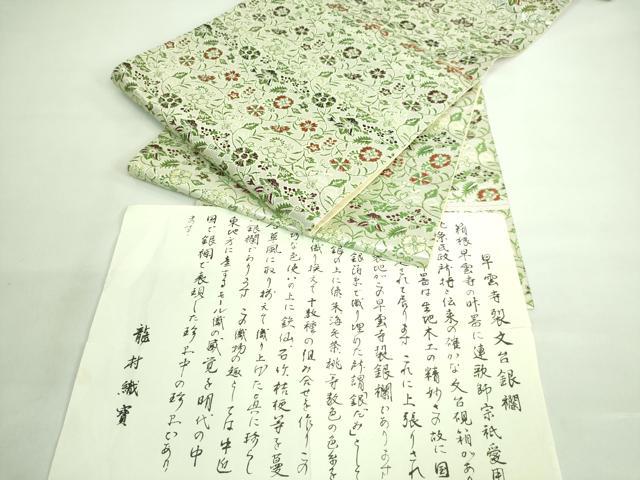 早雲寺裂文台銀欄
箱根早雲寺の什器に連歌師宗祇愛用
北条氏政所持と伝来の確かな文台硯箱があり
器は生地木工の精妙さの故に国
されて居ります これに上張りされ
地がこの早雲寺裂銀欄であります
銀箔糸で織り埋めた所謂銀だみとして
銀の上に藤朱海老茶桃等数色の色糸を
織り換えて十数種の組み合せを作りこの
な色使いの上に鉄仙石竹桔梗等を蔓
草風に取り揃えて織り上げた真に珍らし
銀欄であります この織物の趣としては中近
東地方に産するモール織の感覚を明代の中
国で銀欄で表現した珍品中の珍品であり
ます
龍村織寶